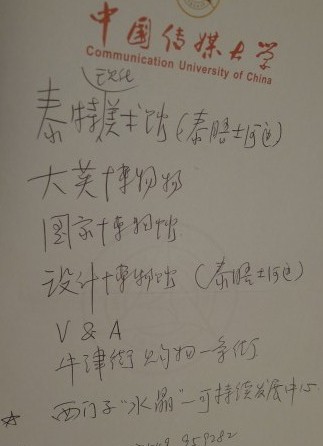 中国传媒大学
Communication University of China
现代
泰特美术馆(泰晤士河边)
大英博物物
国家博物馆
设计博物馆(泰晤士河边)
V & A
牛津街 购物一条街
☆ 西门子“水晶”—可持续发展中心